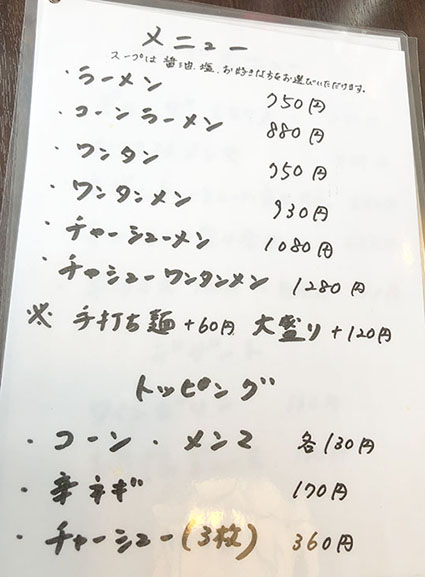 メニュー
スープは 醤油、塩、お好きな方をお選びいただけます。
・ラーメン 750円
・コーンラーメン 880円
・ワンタン 750円
・ワンタンメン 930円
・チャーシューメン 1080円
・チャーシューワンタンメン 1280円
※ 手打ち麺+60円 大盛り+120円
トッピング
・コーン・メンマ 各130円
・辛ネギ 170円
・チャーシュー(3枚) 360円